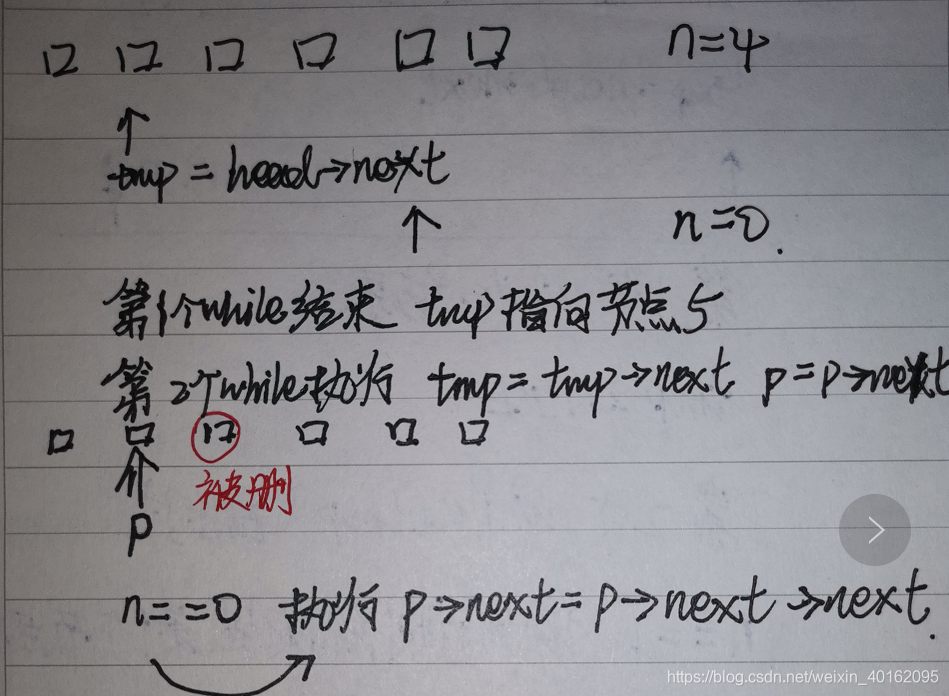 n=4
tmp = head→next
n=0.
第1个while结束 tmp指向节点5
第2个while执行 tmp = tmp→next p=p→next
被删
p
n==0 执行 p→next=p→next→next.
https://blog.csdn.net/weixin_40162095